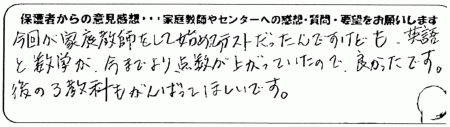 保護者からの意見感想･･･家庭教師やセンターへの感想・質問・要望をお願いします
今回が家庭教師をして始めてのテストだったんですけども、英語
と数学が、今までより点数が上がっていたので、良かったです。
後の3教科もがんばってほしいです。